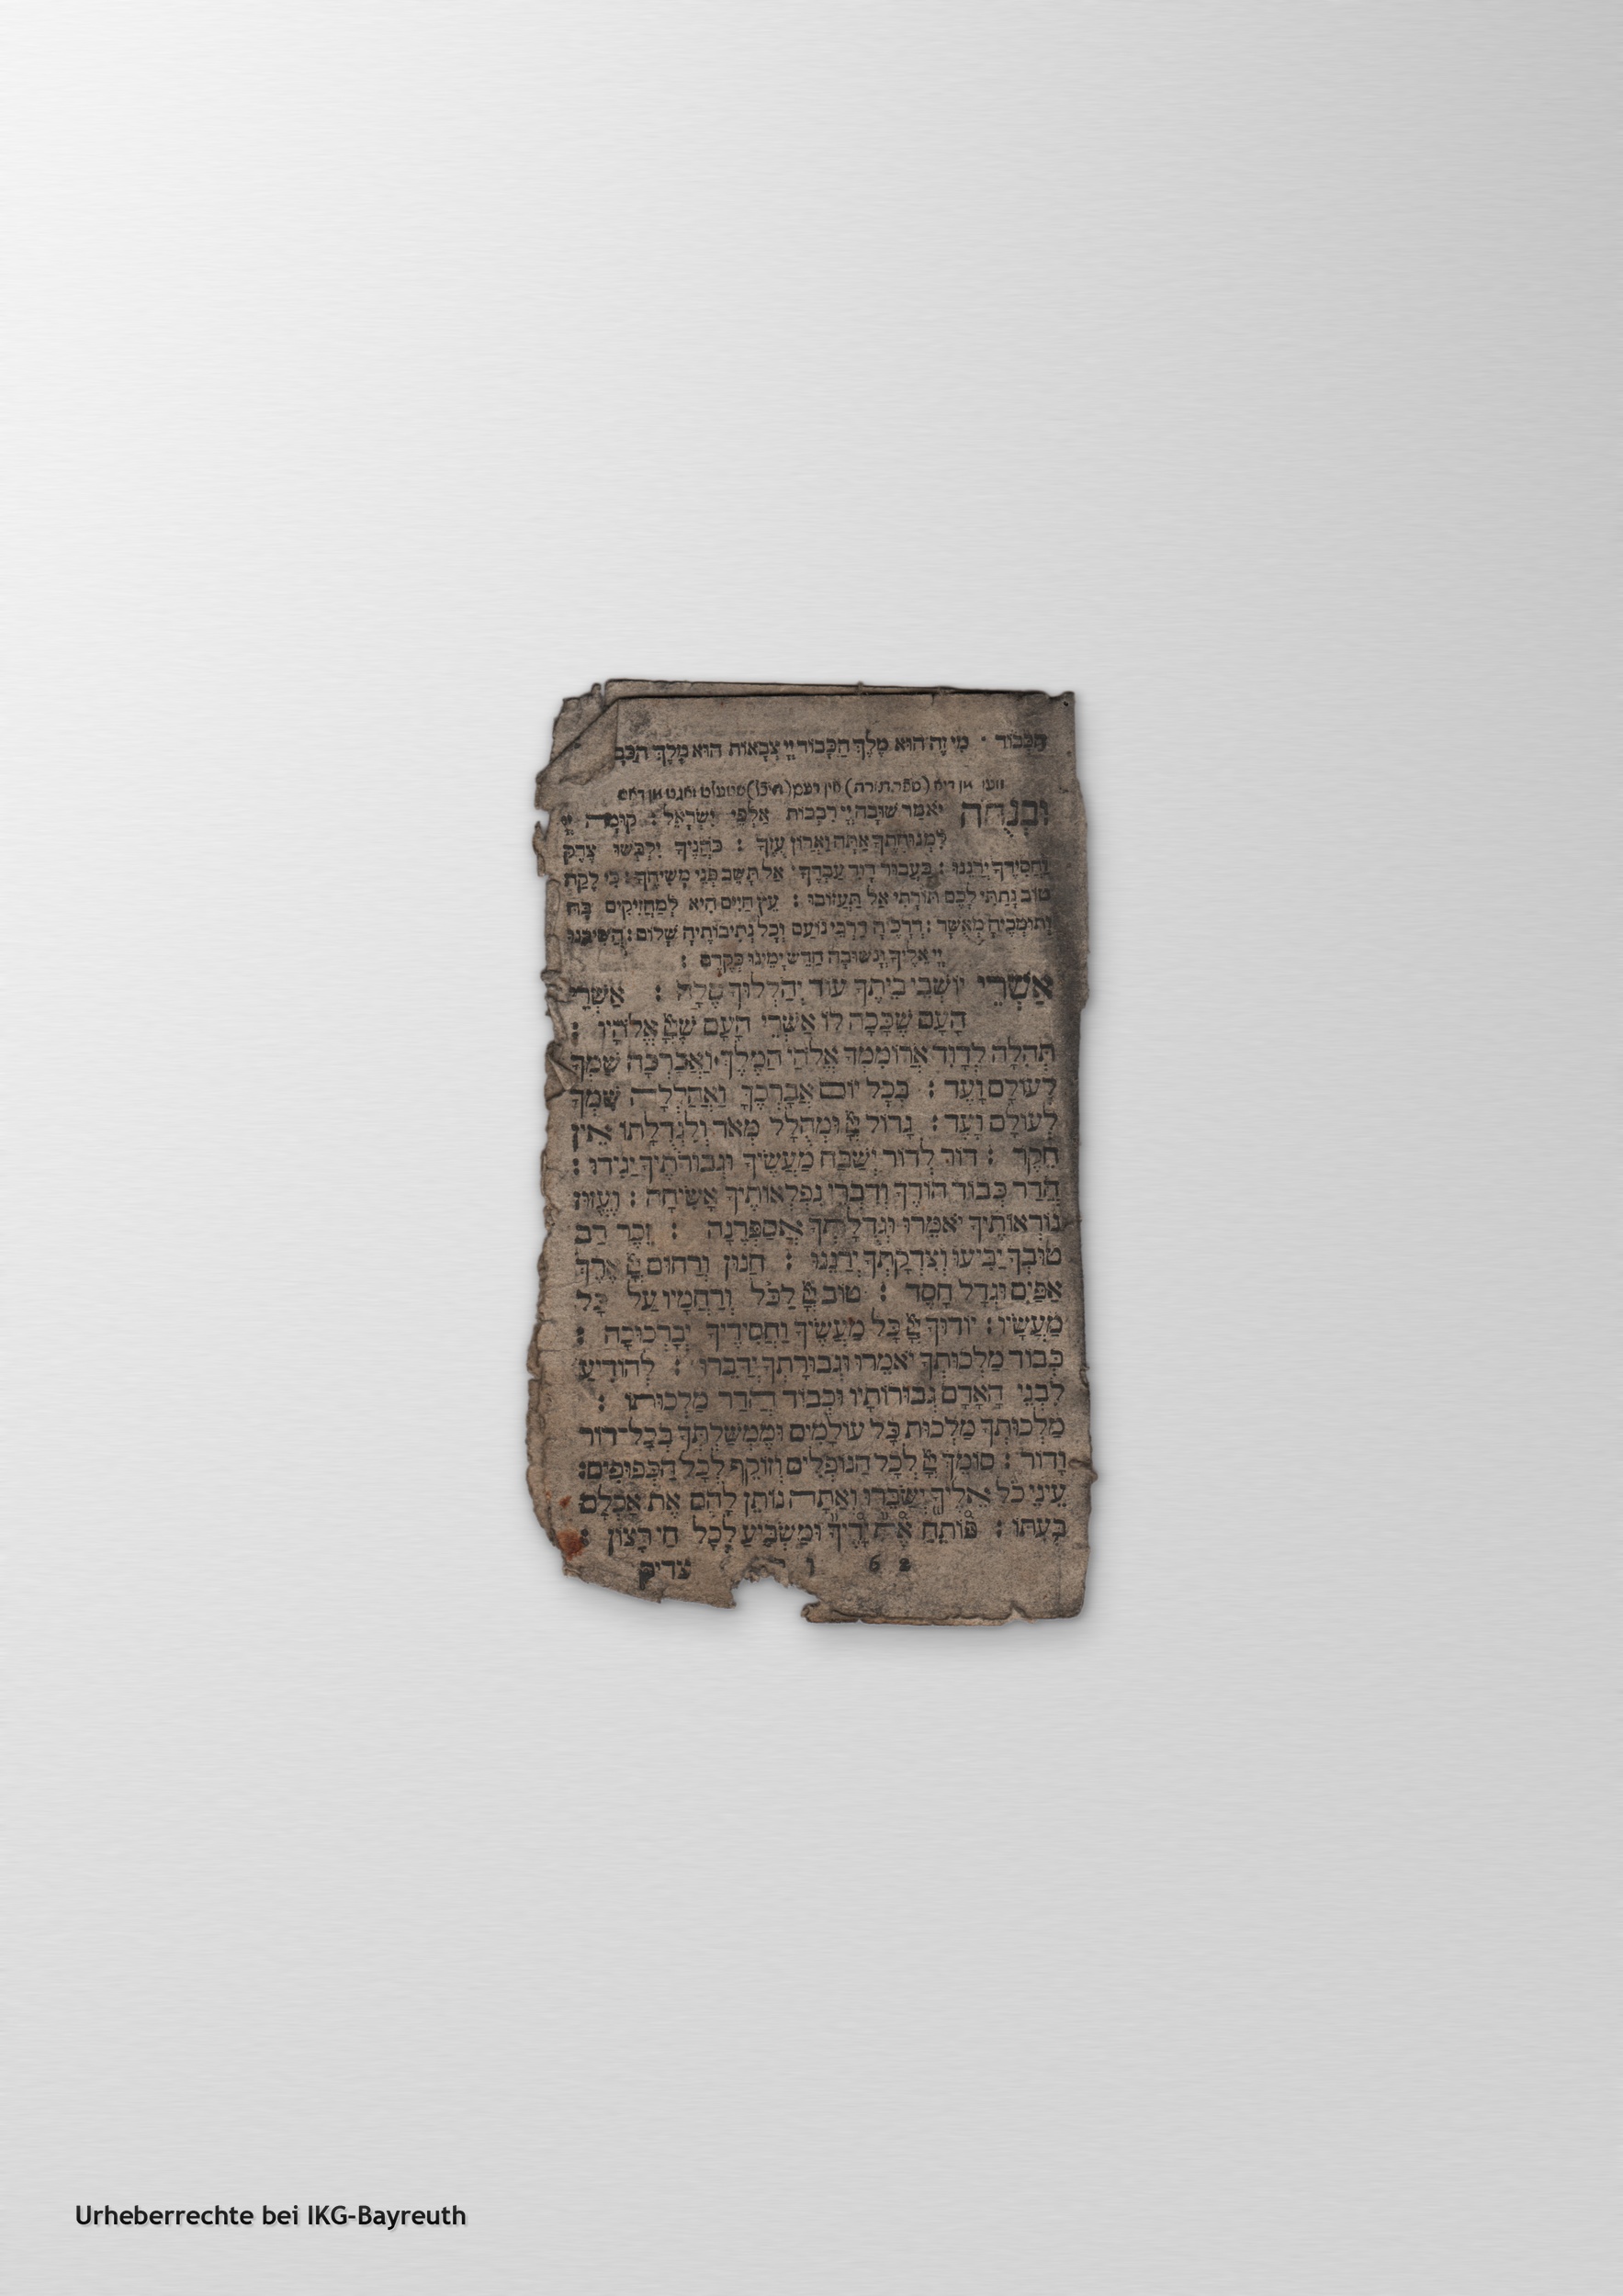 הַכָּבוֹד · מִי זֶה הוּא מֶלֶךְ הַכָּבוֹד יְיָ צְבָאוֹת הוּא מֶלֶךְ הַכָּב
ווען מן דיא (ספר תורה) אין דעם
וּבְנֻחֹה יֹאמַר שׁוּבָה יְיָ רִבְבוֹת אַלְפֵי יִשְׂרָאֵל : קוּמָה יְיָ
לִמְנוּחָתֶךָ אַתָּה וַאֲרוֹן עֻזֶּךָ : כֹּהֲנֶיךָ יִלְבְּשׁוּ צֶדֶק
וַחֲסִידֶיךָ יְרַנֵּנוּ : בַּעֲבוּר דָּוִד עַבְדֶּךָ אַל תָּשֵׁב פְּנֵי מְשִׁיחֶךָ : כִּי לֶקַח
טוֹב נָתַתִּי לָכֶם תּוֹרָתִי אַל תַּעֲזוֹבוּ : עֵץ חַיִּים הִיא לַמַּחֲזִיקִים בָּהּ
וְתוֹמְכֶיהָ מְאֻשָּׁר : דְּרָכֶיהָ דַרְכֵי נוֹעַם וְכָל נְתִיבוֹתֶיהָ שָׁלוֹם : הֲשִׁיבֵנוּ
יְיָ אֵלֶיךָ וְנָשׁוּבָה חַדֵּשׁ יָמֵינוּ כְּקֶדֶם :
אַשְׁרֵי יוֹשְׁבֵי בֵיתֶךָ עוֹד יְהַלְלוּךָ סֶּלָה : אַשְׁרֵי
הָעָם שֶׁכָּכָה לּוֹ אַשְׁרֵי הָעָם שֶׁיְיָ אֱלֹהָיו :
תְּהִלָּה לְדָוִד אֲרוֹמִמְךָ אֱלֹהַי הַמֶּלֶךְ · וַאֲבָרְכָה שִׁמְךָ
לְעוֹלָם וָעֶד : בְּכָל יוֹם אֲבָרְכֶךָּ וַאֲהַלְלָה שִׁמְךָ
לְעוֹלָם וָעֶד : גָּדוֹל יְיָ וּמְהֻלָּל מְאֹד וְלִגְדֻלָּתוֹ אֵין
חֵקֶר : דּוֹר לְדוֹר יְשַׁבַּח מַעֲשֶׂיךָ וּגְבוּרֹתֶיךָ יַגִּידוּ :
הֲדַר כְּבוֹד הוֹדֶךָ וְדִבְרֵי נִפְלְאוֹתֶיךָ אָשִׂיחָה : וֶעֱזוּז
נוֹרְאוֹתֶיךָ יֹאמֵרוּ וּגְדֻלָּתְךָ אֲסַפְּרֶנָּה : זֵכֶר רַב
טוּבְךָ יַבִּיעוּ וְצִדְקָתְךָ יְרַנֵּנוּ : חַנּוּן וְרַחוּם יְיָ אֶרֶךְ
אַפַּיִם וּגְדָל חָסֶד : טוֹב יְיָ לַכֹּל וְרַחֲמָיו עַל כָּל
מַעֲשָׂיו : יוֹדוּךָ יְיָ כָּל מַעֲשֶׂיךָ וַחֲסִידֶיךָ יְבָרְכוּכָה :
כְּבוֹד מַלְכוּתְךָ יֹאמֵרוּ וּגְבוּרָתְךָ יְדַבֵּרוּ : לְהוֹדִיעַ
לִבְנֵי הָאָדָם גְּבוּרוֹתָיו וּכְבוֹד הֲדַר מַלְכוּתוֹ :
מַלְכוּתְךָ מַלְכוּת כָּל עוֹלָמִים וּמֶמְשַׁלְתְּךָ בְּכָל־דּוֹר
וָדוֹר : סוֹמֵךְ יְיָ לְכָל הַנּוֹפְלִים וְזוֹקֵף לְכָל הַכְּפוּפִים :
עֵינֵי כֹל אֵלֶיךָ יְשַׂבֵּרוּ וְאַתָּה נוֹתֵן לָהֶם אֶת אָכְלָם
בְּעִתּוֹ : פּוֹתֵחַ אֶת יָדֶיךָ וּמַשְׂבִּיעַ לְכָל חַי רָצוֹן :
צדיק
Urheberrechte bei IKG-Bayreuth